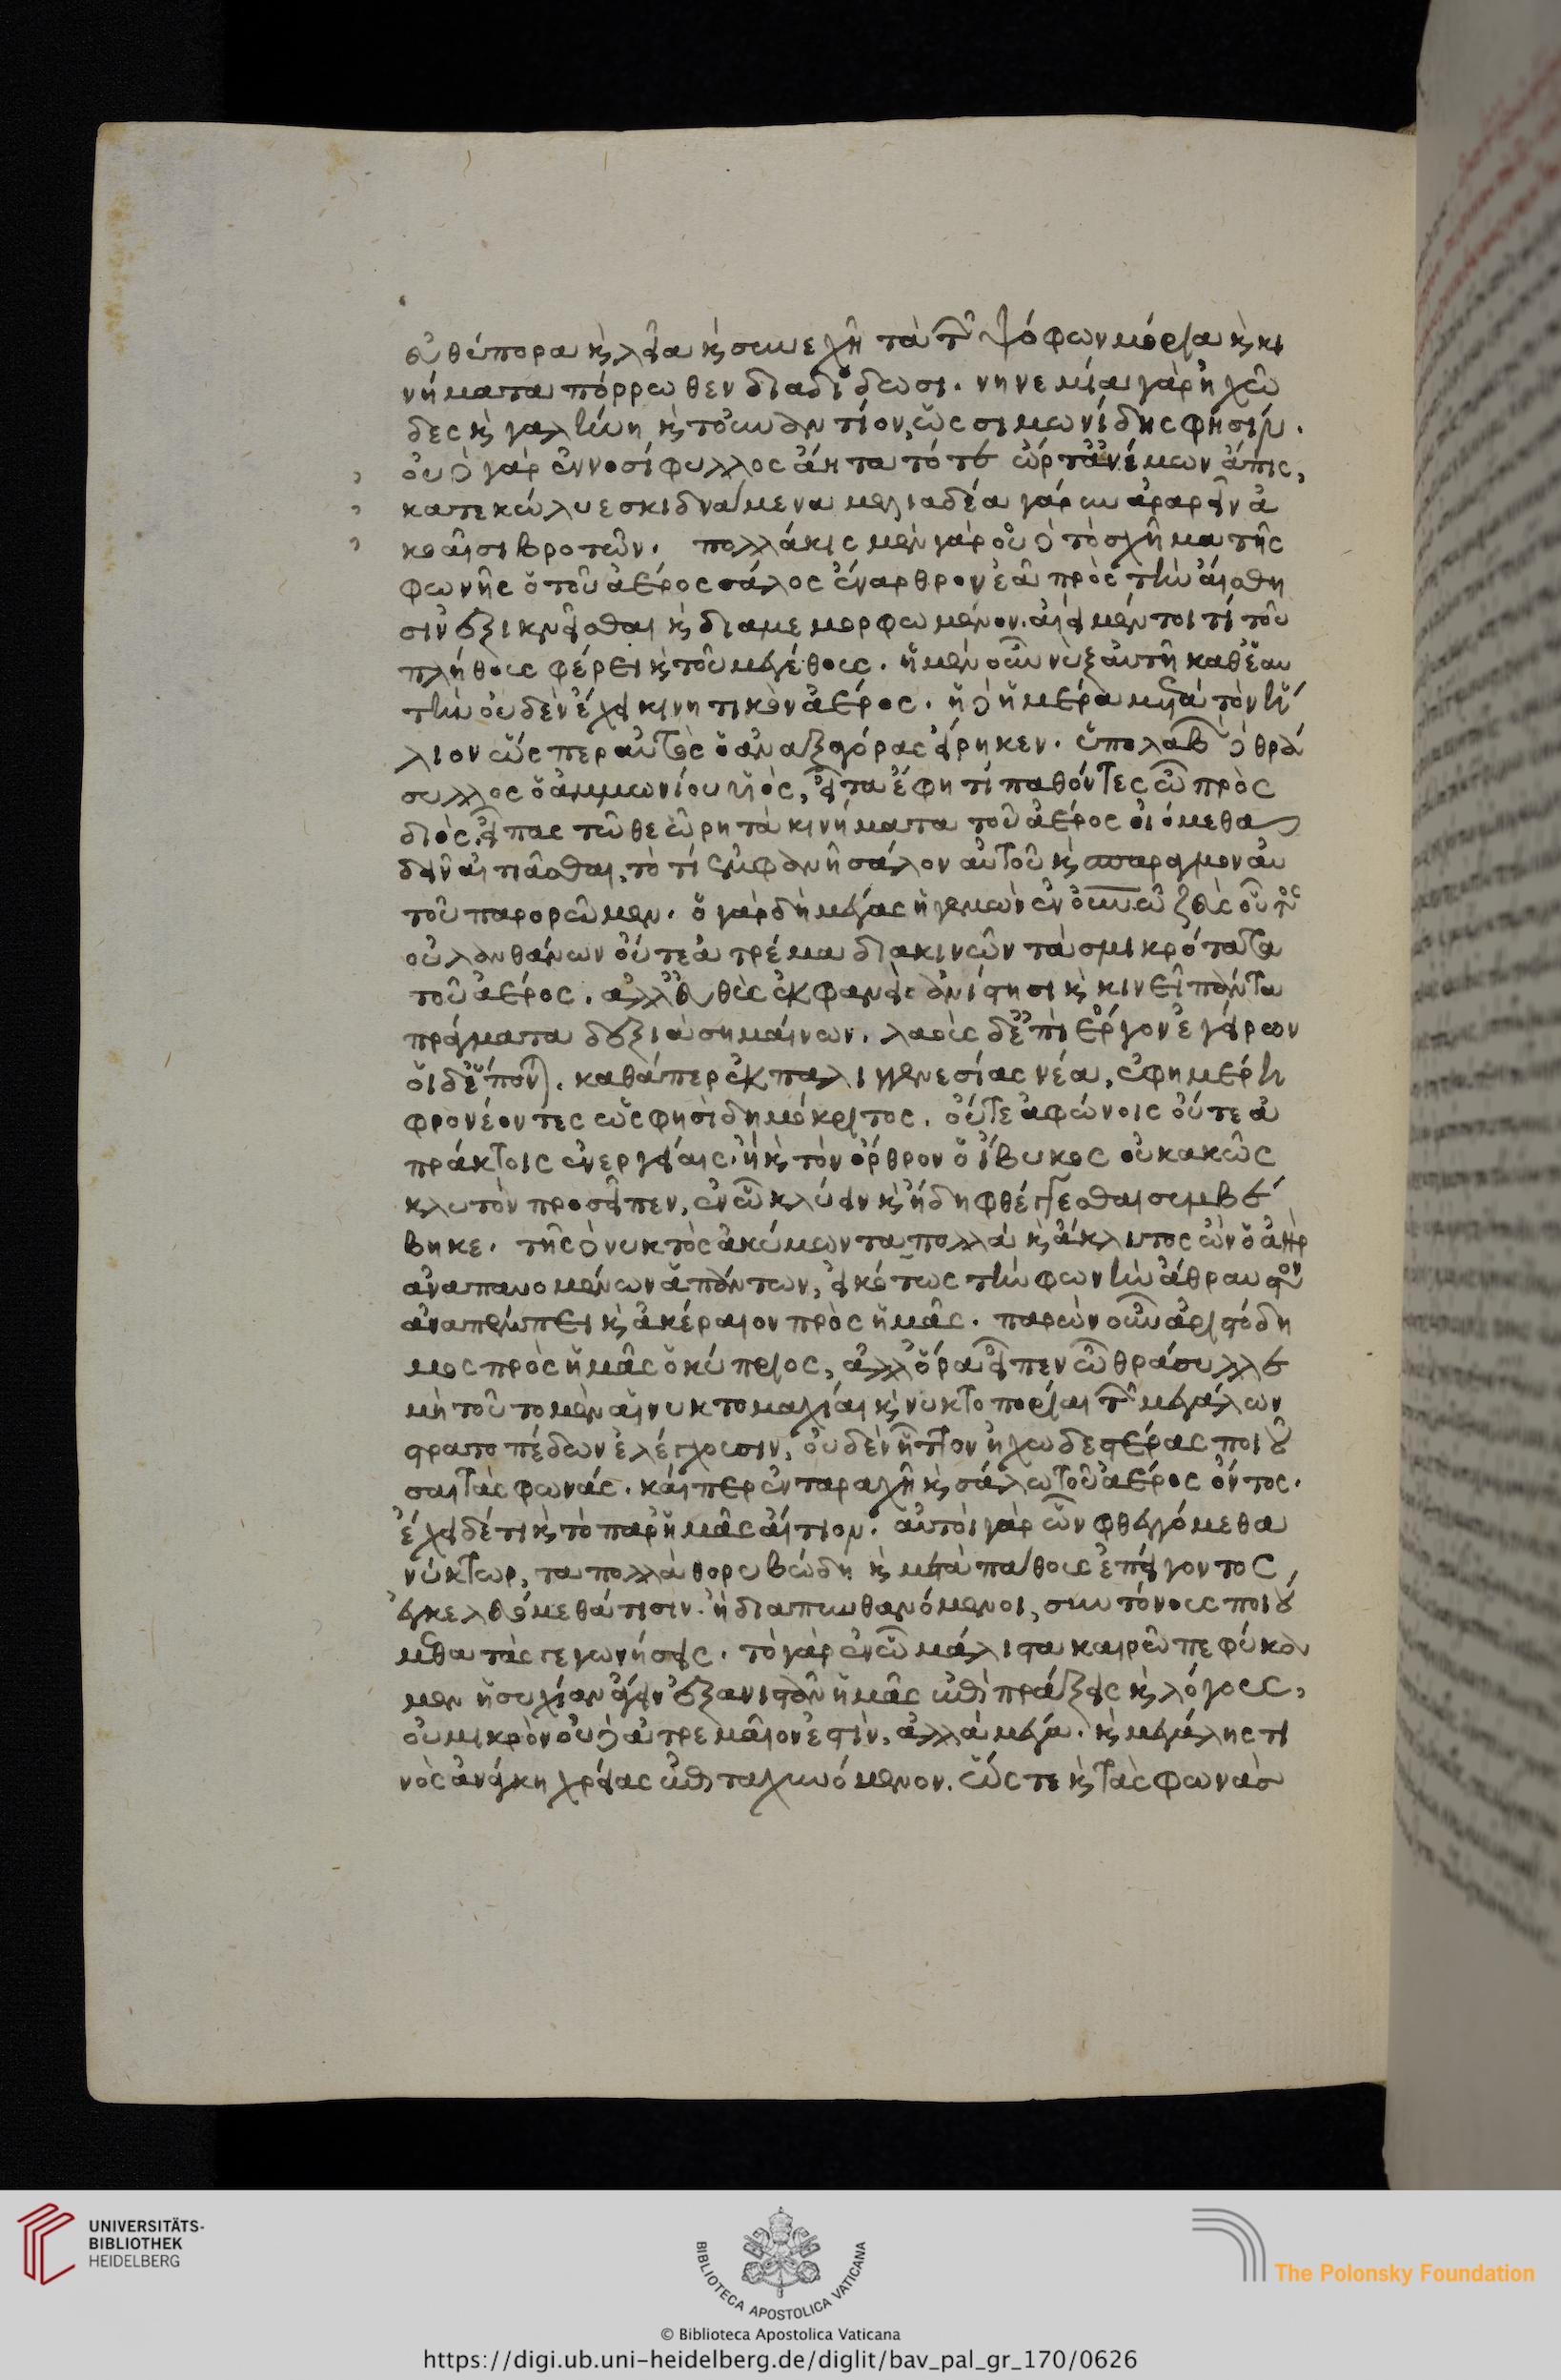 εὐθύπορα κ̀ λεῖα κ̀ συνεχῆ τὰ τῶν ψόφων μόρια κ̀ κι
νήματα πόρρωθεν διαδίδωσι. νηνεμία γὰρ ἠχῶ
δες κ̀ γαλήνη κ̀ τοὐναντίον, ὡς σιμωνίδης φησίν.
οὐδὲ γὰρ ἐννοσίφυλλος ἀήτα τότε ὦρτ' ἀνέμων ἅτις,
κατεκώλυε σκιδναμένα μελιαδέα γάρυν ἀραρεῖν ἀ
κοαῖσι βροτῶν. πολλάκις μὲν γὰρ οὐδὲ τὸ σχῆμα τῆς
φωνῆς ὁ τοῦ ἀέρος σάλος ἔναρθρον ἐᾷ πρὸς τὴν αἴσθη
σιν ἐξικνεῖσθαι κ̀ διαμεμορφωμένον. ἀεὶ μέντοι τί τοῦ
πλήθους φέρει κ̀ τοῦ μεγέθους. ἡ μὲν οὖν νὺξ αὐτὴ καθ' ἑαυ
τὴν οὐδὲν ἔχει κινητικὸν ἀέρος. ἡ δὲ ἡμέρα μέγα τὸν ἥ
λιον ὥσπερ αὐτὸς ὁ ἀναξαγόρας εἴρηκεν. ὑπολαβὼν δὲ θρά
συλλος ὁ ἀμμωνίου υἱὸς, εἶτα ἔφη τί παθόντες ὦ πρὸς
διὸς, εἶπας τῷ θεωρητὰ κινήματα τοῦ ἀέρος οἰόμεθα
δεῖν αἰτιᾶσθαι, τὸ τί ἐμφανῆ σάλον αὐτοῦ κ̀ σπαραγμὸν αὐ
τοῦ παρορῶμεν. ὁ γὰρ δὴ μέγας ἡγεμὼν ἐν οὐνῶ ζεὺς οὗτος
οὐ λανθάνων οὔτε ἀτρέμα διακινῶν τὰ σμικρότατα
τοῦ ἀέρος. ἀλλ' εὐθὺς ἐκφανεὶς ἀνίστησι κ̀ κινεῖ πάντα
πράγματα δεξιὰ σημαίνων. λαοὺς δὲ ἐπὶ ἔργον ἐγείρων
οἱ δὲ ἕπονται. καθάπερ ἐκ παλιγγενεσίας νέα, ἐφημέρη
φρονέοντες ὥς φησι δημόκριτος. οὔτε ἀφώνοις οὔτε ἀ
πράκτοις ἐνεργείαις. ᾗ κ̀ τὸν ὄρθρον ὁ ἴβυκος οὐ κακῶς
κλυτὸν προσεῖπεν, ἐν ᾧ κλύειν κ̀ ἤδη φθέγγεσθαι συμβέ
βηκε. τῆς δὲ νυκτὸς ἀκύμων τὰ πολλὰ κ̀ ἄκλυτος ὢν ὁ ἀὴρ
ἀναπαυομένων ἁπάντων, εἰκότως τὴν φωνὴν ἄθραυστον
ἀναπέμπει κ̀ ἀκέραιον πρὸς ἡμᾶς. παρὼν οὖν ἀριστόδη
μος πρὸς ἡμᾶς ὁ κύπριος, ἀλλ' ὅρα εἶπεν ὦ θράσυλλε
μὴ τοῦτο μὲν αἱ νυκτομαχίαι κ̀ νυκτοπορίαι τῶν μεγάλων
στρατοπέδων ἐλέγχουσιν, οὐδὲν ἧττον ἠχωδεστέρας ποιοῦ
σαι τὰς φωνάς. καίπερ ἐν ταραχῇ κ̀ σάλω τοῦ ἀέρος ὄντος.
ἔχει δέ τι κ̀ τὸ παρ' ἡμᾶς αἴτιον. αὐτοὶ γὰρ ὧν φθεγγόμεθα
νύκτωρ, τὰ πολλὰ θορυβώδη κ̀ μετὰ πάθους ἐπείγοντος,
ἐγκελευόμεθά τισιν. ἢ διαπυνθανόμενοι, συντόνους ποιού
μεθα τὰς γεγωνήσεις. τὸ γὰρ ἐν ᾧ μάλιστα καιρῶ πεφύκα
μεν ἡσυχίαν ἄγειν ἐξανιστὰν ἡμᾶς ἐπὶ πράξεις κ̀ λόγους,
οὐ μικρὸν οὐδὲ ἀτρεμαῖον ἐστὶν, ἀλλὰ μέγα. κ̀ μεγάλης τι
νὸς ἀνάγκη χρείας ἐπιταχυνόμενον. ὥστε κ̀ τὰς φωνὰσ
UNIVERSITÄTS-
BIBLIOTHEK
HEIDELBERG
BIBLIOTECA APOSTOLICA VATICANA
The Polonsky Foundation
© Biblioteca Apostolica Vaticana
https://digi.ub.uni-heidelberg.de/diglit/bav_pal_gr_170/0626